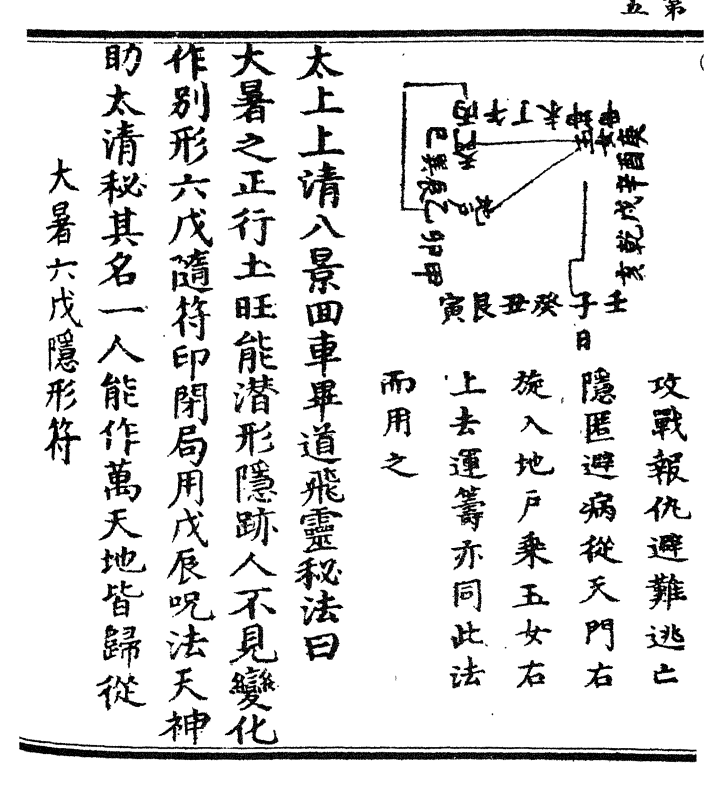 第
五
庚酉辛戌乾亥
申坤未丁午丙
玉女
巳巽辰乙卯甲
地戶
壬子癸丑艮寅
日
攻戰報仇避難逃亡
隱匿避病從天門右
旋入地戶乘玉女右
上去運籌亦同此法
而用之
太上上清八景回車畢道飛靈秘法曰
大暑之正行土旺能潜形隱跡人不見變化
作別形六戊隨符印閉局用戊辰呪法天神
助太清秘其名一人能作萬天地皆歸從
大暑六戊隱形符